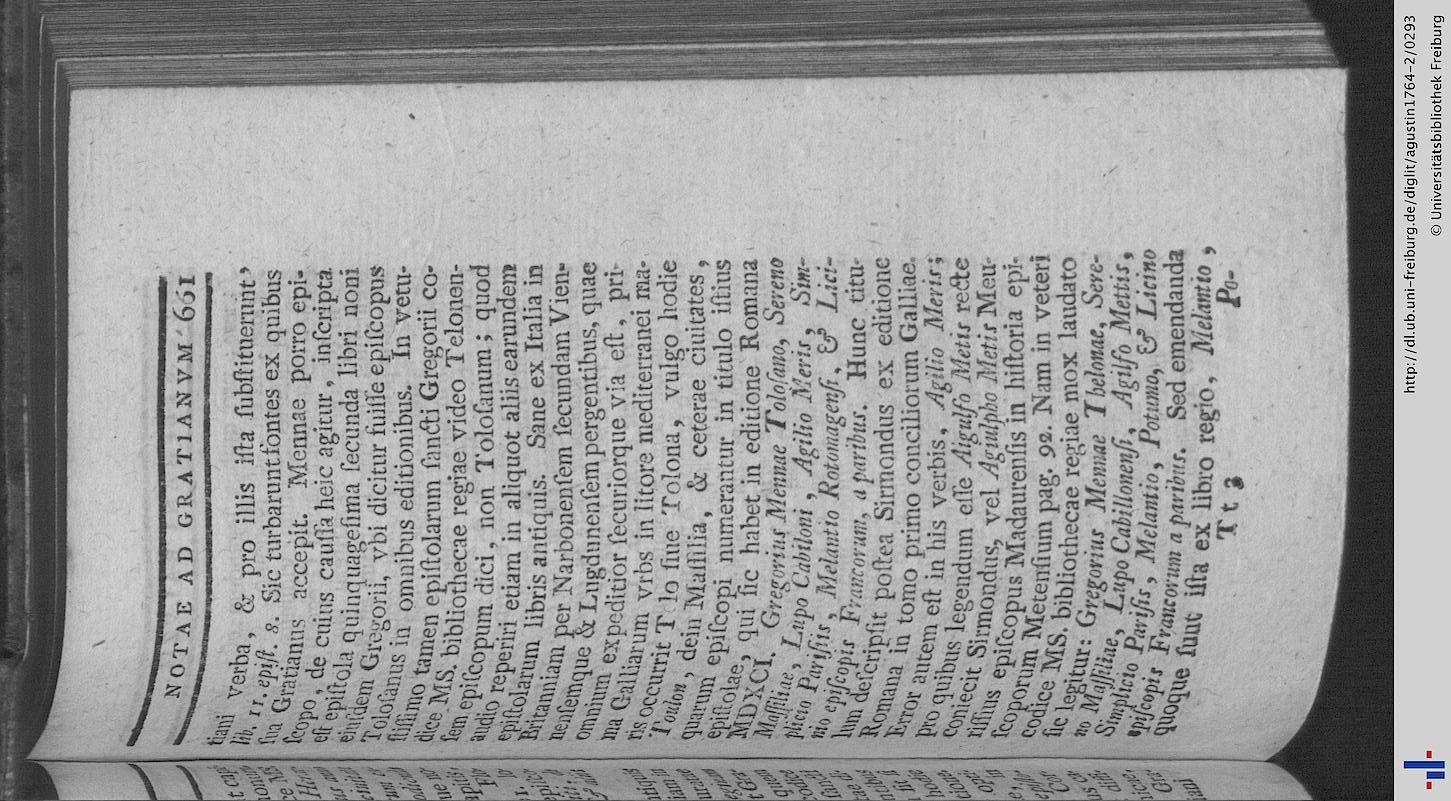 NOTAE AD GRATIANVM. 661
tiani verba, & pro illis iſta ſubſtituerunt,
lib. 11. epiſt. 8. Sic turbaruntfontes ex quibus
ſua Gratianus accepit. Mennae porro epi-
ſcopo, de cuius cauſſa heic agitur, inſcripta
eſt epiſtola quinquageſima ſecunda libri noni
eiuſdem Gregorii, vbi dicitur fuiſſe epiſcopus
Toloſanus in omnibus editionibus. In vetu-
ſtiſſimo tamen epiſtolarum ſancti Gregorii co-
dice MS. bibliothecae regiae video Telonen-
ſem epiſcopum dici, non Toloſanum; quod
audio reperiri etiam in aliquot aliis earundem
epiſtolarum libris antiquis. Sane ex Italia in
Britanniam per Narbonenſem ſecundam Vien-
nenſemque & Lugdunenſem pergentibus, quae
omnium expeditior ſecuriorque via eſt, pri-
ma Galliarum vrbs in litore mediterranei ma-
ris occurrit T lo ſiue Tolona, vulgo hodie
Toulon, dein Maſſilia, & ceterae ciuitates,
quarum epiſcopi numerantur in titulo iſtius
epiſtolae, qui ſic habet in editione Romana
MDXCI. Gregorius Mennae Toloſano, Sereno
Maſſiliae, Lupo Cabiloni, Agilio Meris, Sim-
plicio Pariſiis, Melantio Rotomagenſi, & Lici-
nio epiſcopis Francorum, a paribus. Hunc titu-
lum deſcripſit poſtea Sirmondus ex editione
Romana in tomo primo conciliorum Galliae.
Error autem eſt in his verbis, Agilio Meris;
pro quibus legendum eſſe Aigulfo Metis recte
coniecit Sirmondus, vel Agiulpho Metis Meu-
riſſius epiſcopus Madaurenſis in hiſtoria epi-
ſcoporum Metenſium pag. 92. Nam in veteri
codice MS. bibliothecae regiae mox laudato
ſic legitur: Gregorius Mennae Thelonae, Sere-
no Maſſiliae, Lupo Cabillonenſi, Agilfo Mettis,
Simplicio Pariſis, Melantio, Potumo, & Licino
epiſcopis Francorum a paribus. Sed emendanda
quoque ſunt iſta ex libro regio, Melantio,
Tt 3 Po-
http://dl.ub.uni-freiburg.de/diglit/agustin1764-2/0293
© Universitätsbibliothek Freiburg